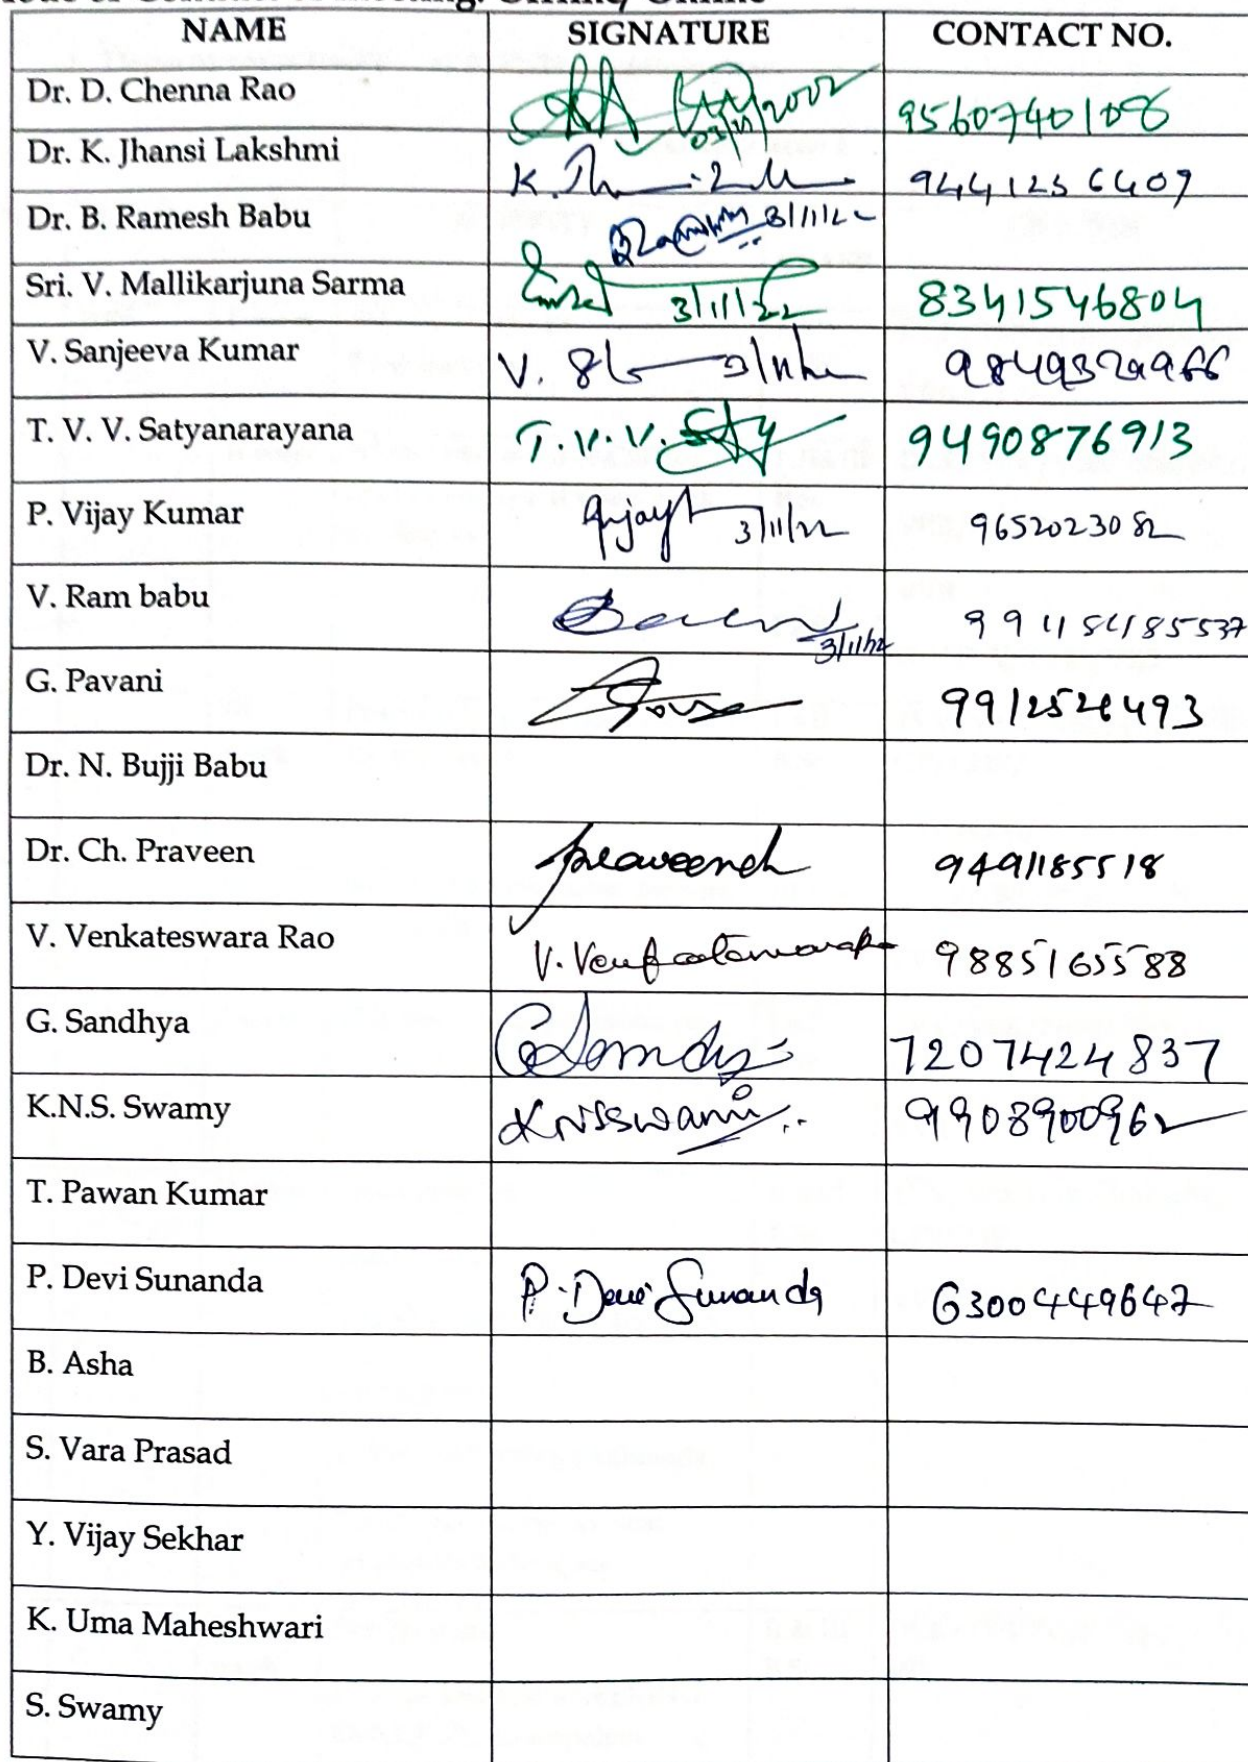 NAME SIGNATURE CONTACT NO.
Dr. D. Chenna Rao 03/11/2022 9560740108
Dr. K. Jhansi Lakshmi K. 9441256409
Dr. B. Ramesh Babu 3/11/22
Sri. V. Mallikarjuna Sarma 3/11/22 8341546804
V. Sanjeeva Kumar V.
T. V. V. Satyanarayana T.V.V. Sty 9490876913
P. Vijay Kumar 3/11/22 9652023082
V. Ram babu 3/11/22
G. Pavani
Dr. N. Bujji Babu
Dr. Ch. Praveen praveench 9491185518
V. Venkateswara Rao V. Venkateswararao 9885165588
G. Sandhya 7207424837
K.N.S. Swamy KNSSwami 9908900962
T. Pawan Kumar
P. Devi Sunanda P. Devi Sunanda 6300449647
B. Asha
S. Vara Prasad
Y. Vijay Sekhar
K. Uma Maheshwari
S. Swamy